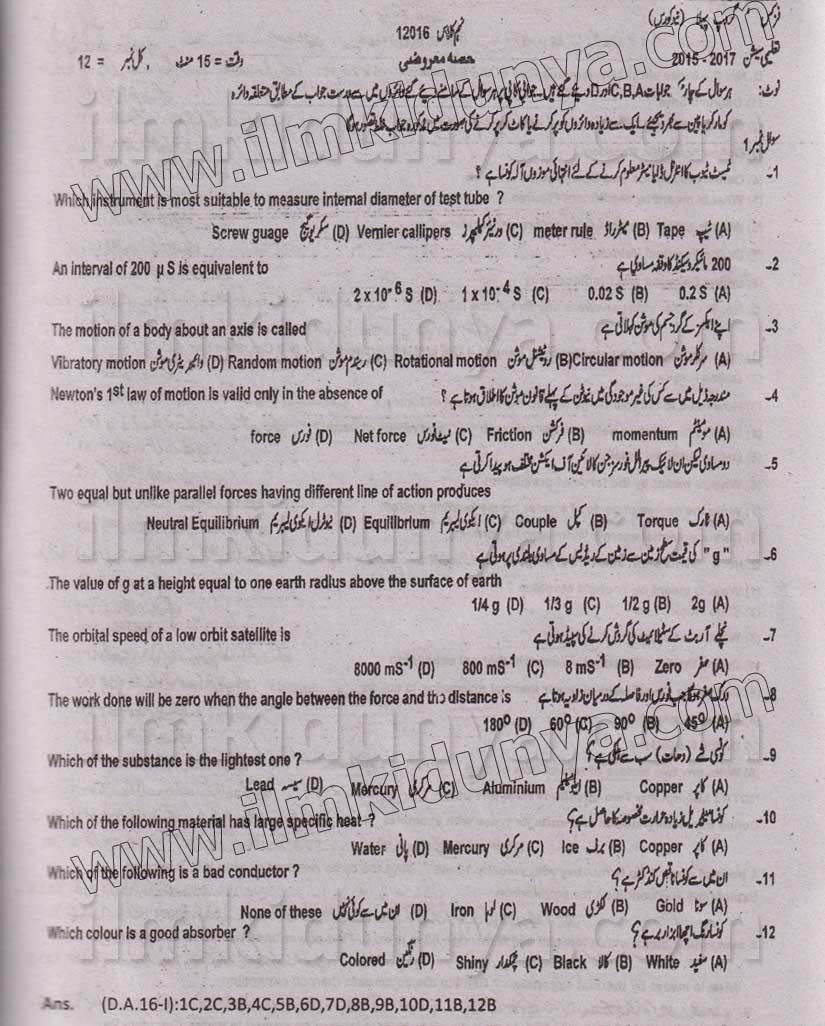 فزکس گروپ پہلا (نیو کورس)
نہم کلاس 12016
تعلیمی سیشن 2015-2017 حصہ معروضی وقت = 15 منٹ , کل نمبر = 12
نوٹ: ہر سوال کے چار جوابات A,B,C اور D دیئے گئے ہیں۔ جوابی کاپی پر ہر سوال کے سامنے دیئے گئے دائروں میں سے درست جواب کے مطابق متعلقہ دائرہ
کو مارکر یا پین سے بھر دیجئے۔ ایک سے زیادہ دائروں کو پر کرنے یا کاٹ کر پر کرنے کی صورت میں مذکورہ جواب غلط تصور ہوگا
سوال نمبر 1
1- ٹیسٹ ٹیوب کا انٹرنل ڈایا میٹر معلوم کرنے کے لئے انتہائی موزوں آلہ کونسا ہے ؟
Which instrument is most suitable to measure internal diameter of test tube ?
(A) ٹیپ Tape (B) میٹرراڈ meter rule (C) ورنیئر کیلیپرز Vernier callipers (D) سکریو گیج Screw guage
2- 200 مائیکرو سیکنڈ کا وقفہ مساوی ہے An interval of 200 µ S is equivalent to
(A) 0.2 S (B) 0.02 S (C) 1 x 10⁻⁴ S (D) 2 x 10⁻⁶ S
3- اپنے ایکسز کے گرد جسم کی موشن کہلاتی ہے The motion of a body about an axis is called
(A) سرکلر موشن Circular motion (B) روٹیشنل موشن Rotational motion (C) رینڈم موشن Random motion (D) وائبریٹری موشن Vibratory motion
4- مندرجہ ذیل میں سے کس کی غیر موجودگی میں نیوٹن کے پہلے قانون موشن کا اطلاق ہوتا ہے ؟ Newton's 1st law of motion is valid only in the absence of
(A) مومینٹم momentum (B) فرکشن Friction (C) نیٹ فورس Net force (D) فورس force
5- دو مساوی لیکن ان لائیک پیرالل فورسز جن کا لائین آف ایکشن مختلف ہو پیدا کرتی ہے
Two equal but unlike parallel forces having different line of action produces
(A) ٹارک Torque (B) کپل Couple (C) ایکوی لبریم Equilibrium (D) نیوٹرل ایکوی لبریم Neutral Equilibrium
6- "g" کی قیمت سطح زمین سے زمین کے ریڈیس کے مساوی بلندی پر ہوتی ہے
The value of g at a height equal to one earth radius above the surface of earth
(A) 2g (B) 1/2 g (C) 1/3 g (D) 1/4 g
7- نچلے آربٹ کے سیٹلائیٹ کی گردش کرنے کی سپیڈ ہوتی ہے The orbital speed of a low orbit satellite is
(A) صفر Zero (B) 8 mS⁻¹ (C) 800 mS⁻¹ (D) 8000 mS⁻¹
8- ورک صفر ہوگا جب فورس اور فاصلہ کے درمیان زاویہ ہوتا ہے The work done will be zero when the angle between the force and the distance is
(A) 45⁰ (B) 90⁰ (C) 60⁰ (D) 180⁰
9- کونسی شے (دھات) سب سے ہلکی ہے؟ Which of the substance is the lightest one ?
(A) کاپر Copper (B) ایلومینیم Aluminium (C) مرکری Mercury (D) سیسہ Lead
10- کونسا میٹیریل زیادہ حرارت مخصوصہ کا حامل ہے؟ Which of the following material has large specific heat ?
(A) کاپر Copper (B) برف Ice (C) مرکری Mercury (D) پانی Water
11- ان میں سے کونسا ناقص کنڈکٹر ہے؟ Which of the following is a bad conductor ?
(A) سونا Gold (B) لکڑی Wood (C) لوہا Iron (D) ان میں سے کوئی نہیں None of these
12- کونسا رنگ اچھا ابزاربر ہے؟ Which colour is a good absorber ?
(A) سفید White (B) کالا Black (C) چمکدار Shiny (D) رنگین Colored
Ans. (D.A.16-I):1C,2C,3B,4C,5B,6D,7D,8B,9B,10D,11B,12B
www.ilmkidunya.com
www.ilmkidunya.com
ilmkidunya.com
ilmkidunya.com
ilmkidunya.com
ilmkidunya.com